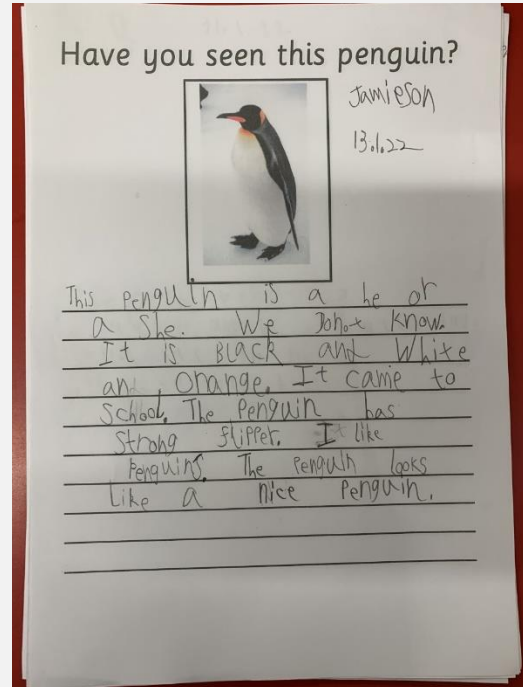 Have you seen this penguin?
Jamieson
13.1.22
This penguin is a he or
a She. We Donot know.
It is BLack and White
and orange. It came to
School. The Penguin has
Strong flipper. I like
Penguins. The penguin looks
Like a nice Penguin.